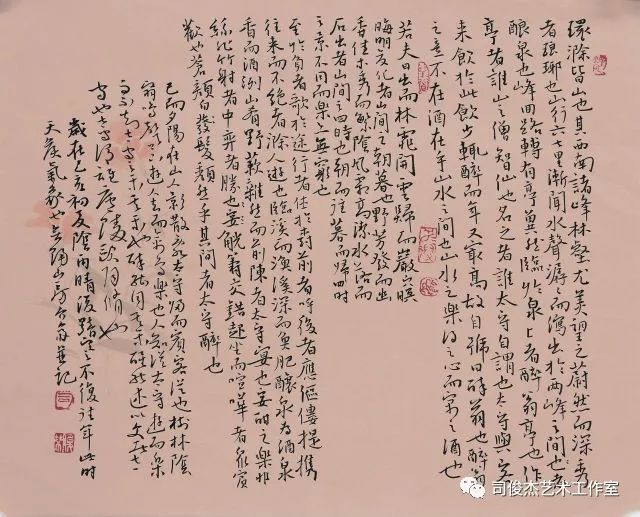 環滁皆山也其西南諸峰林壑尤美望之蔚然而深秀
者琅琊也山行六七里漸聞水聲潺潺而瀉出於兩峰之間也者
釀泉也峰回路轉有亭翼然臨於泉上者醉翁亭也作
亭者誰山之僧智仙也名之者誰太守自謂也太守與客
来飲於此飲少輒醉而年又最高故自號曰醉翁也醉翁
之意不在酒在乎山水之間也山水之樂得之心而寓之酒也
若夫日出而林霏開雲歸而巖穴暝
晦明变化者山间之朝暮也野芳發而幽
香佳木秀而繁陰風霜高潔水落而
石出者山间之四時也朝而往暮而歸四時
之景不同而樂亦無窮也
至於負者歌於途行者休於樹前者呼後者應傴僂提攜
往来而不绝者滁人遊也臨溪而漁溪深而魚肥釀泉為酒泉
香而酒洌山肴野蔌雜然而前陳者太守宴也宴酣之樂非
絲非竹射者中弈者勝也觥籌交錯起坐而喧嘩者众賓
歡也蒼顏白發髮頹然乎其間者太守醉也
已而夕陽在山人影散亂太守歸而賓客從也樹林陰
翳鳴聲上下遊人去而禽鳥樂也人從太守遊而樂
太守醉能同其樂醒能述以文者
太守也太守謂誰廬陵歐陽修也
歲在己亥初夏陰雨晴後不復往年此時
天氣象也山房並記
司俊杰艺术工作室